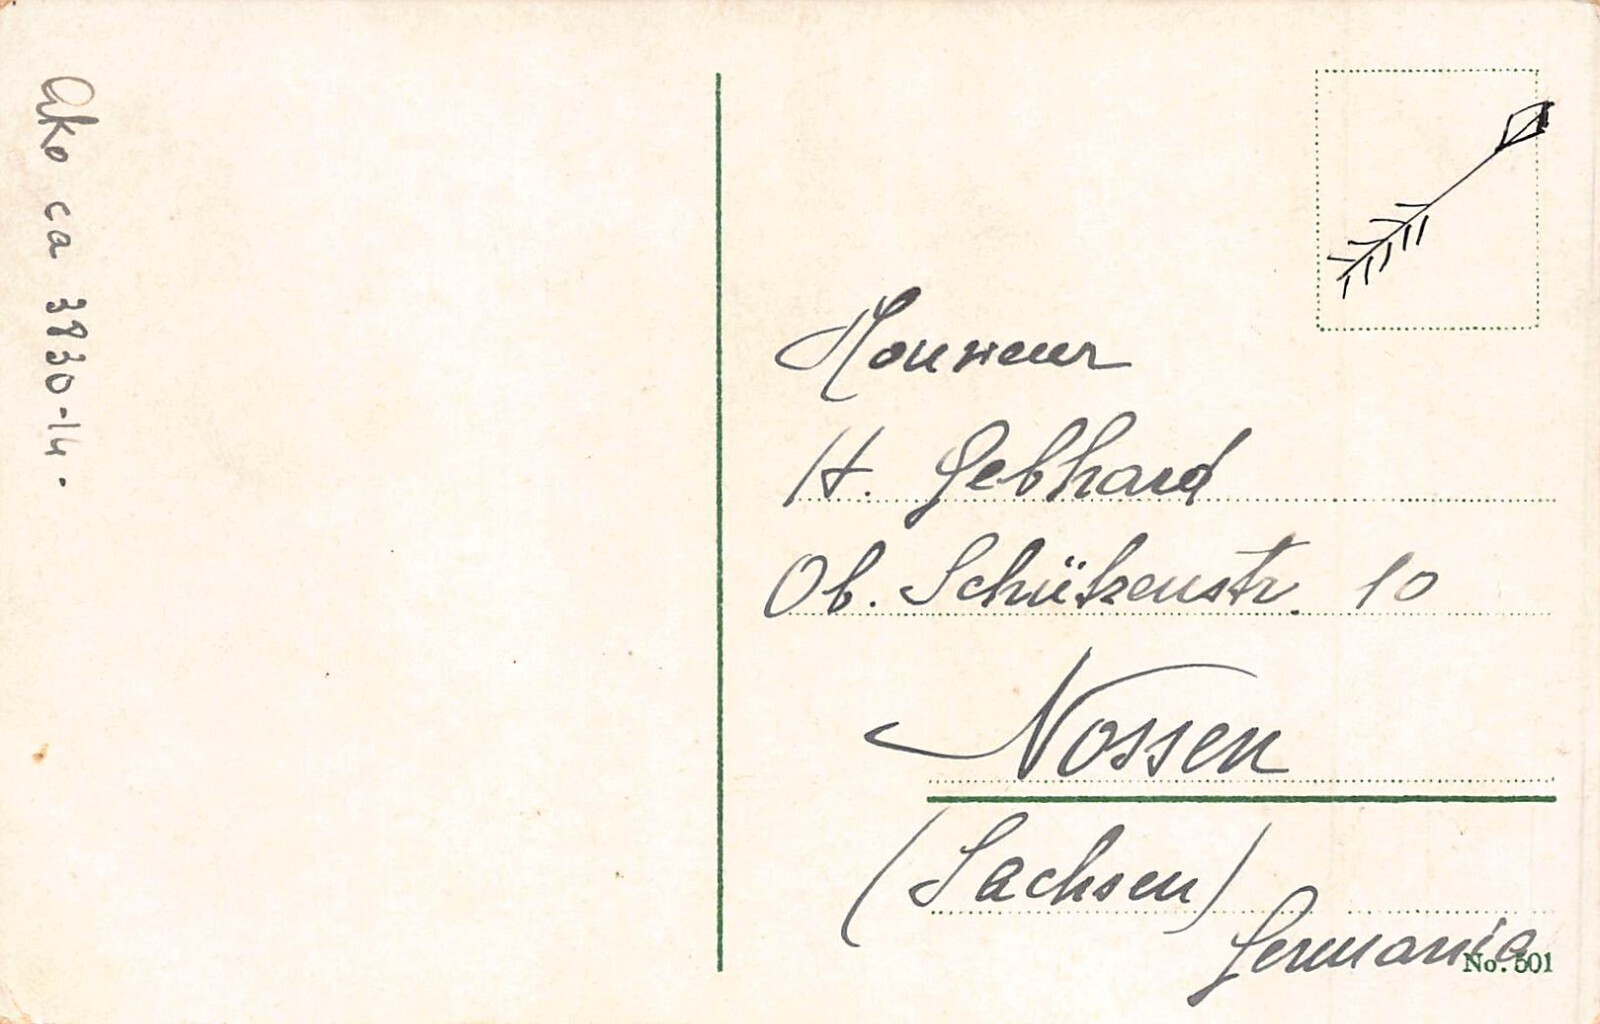 Ako ca 3830-14.
Monsieur
H. Gebhard
Ob. Schützenstr. 10
Nossen
(Sachsen)
Germania
No. 501